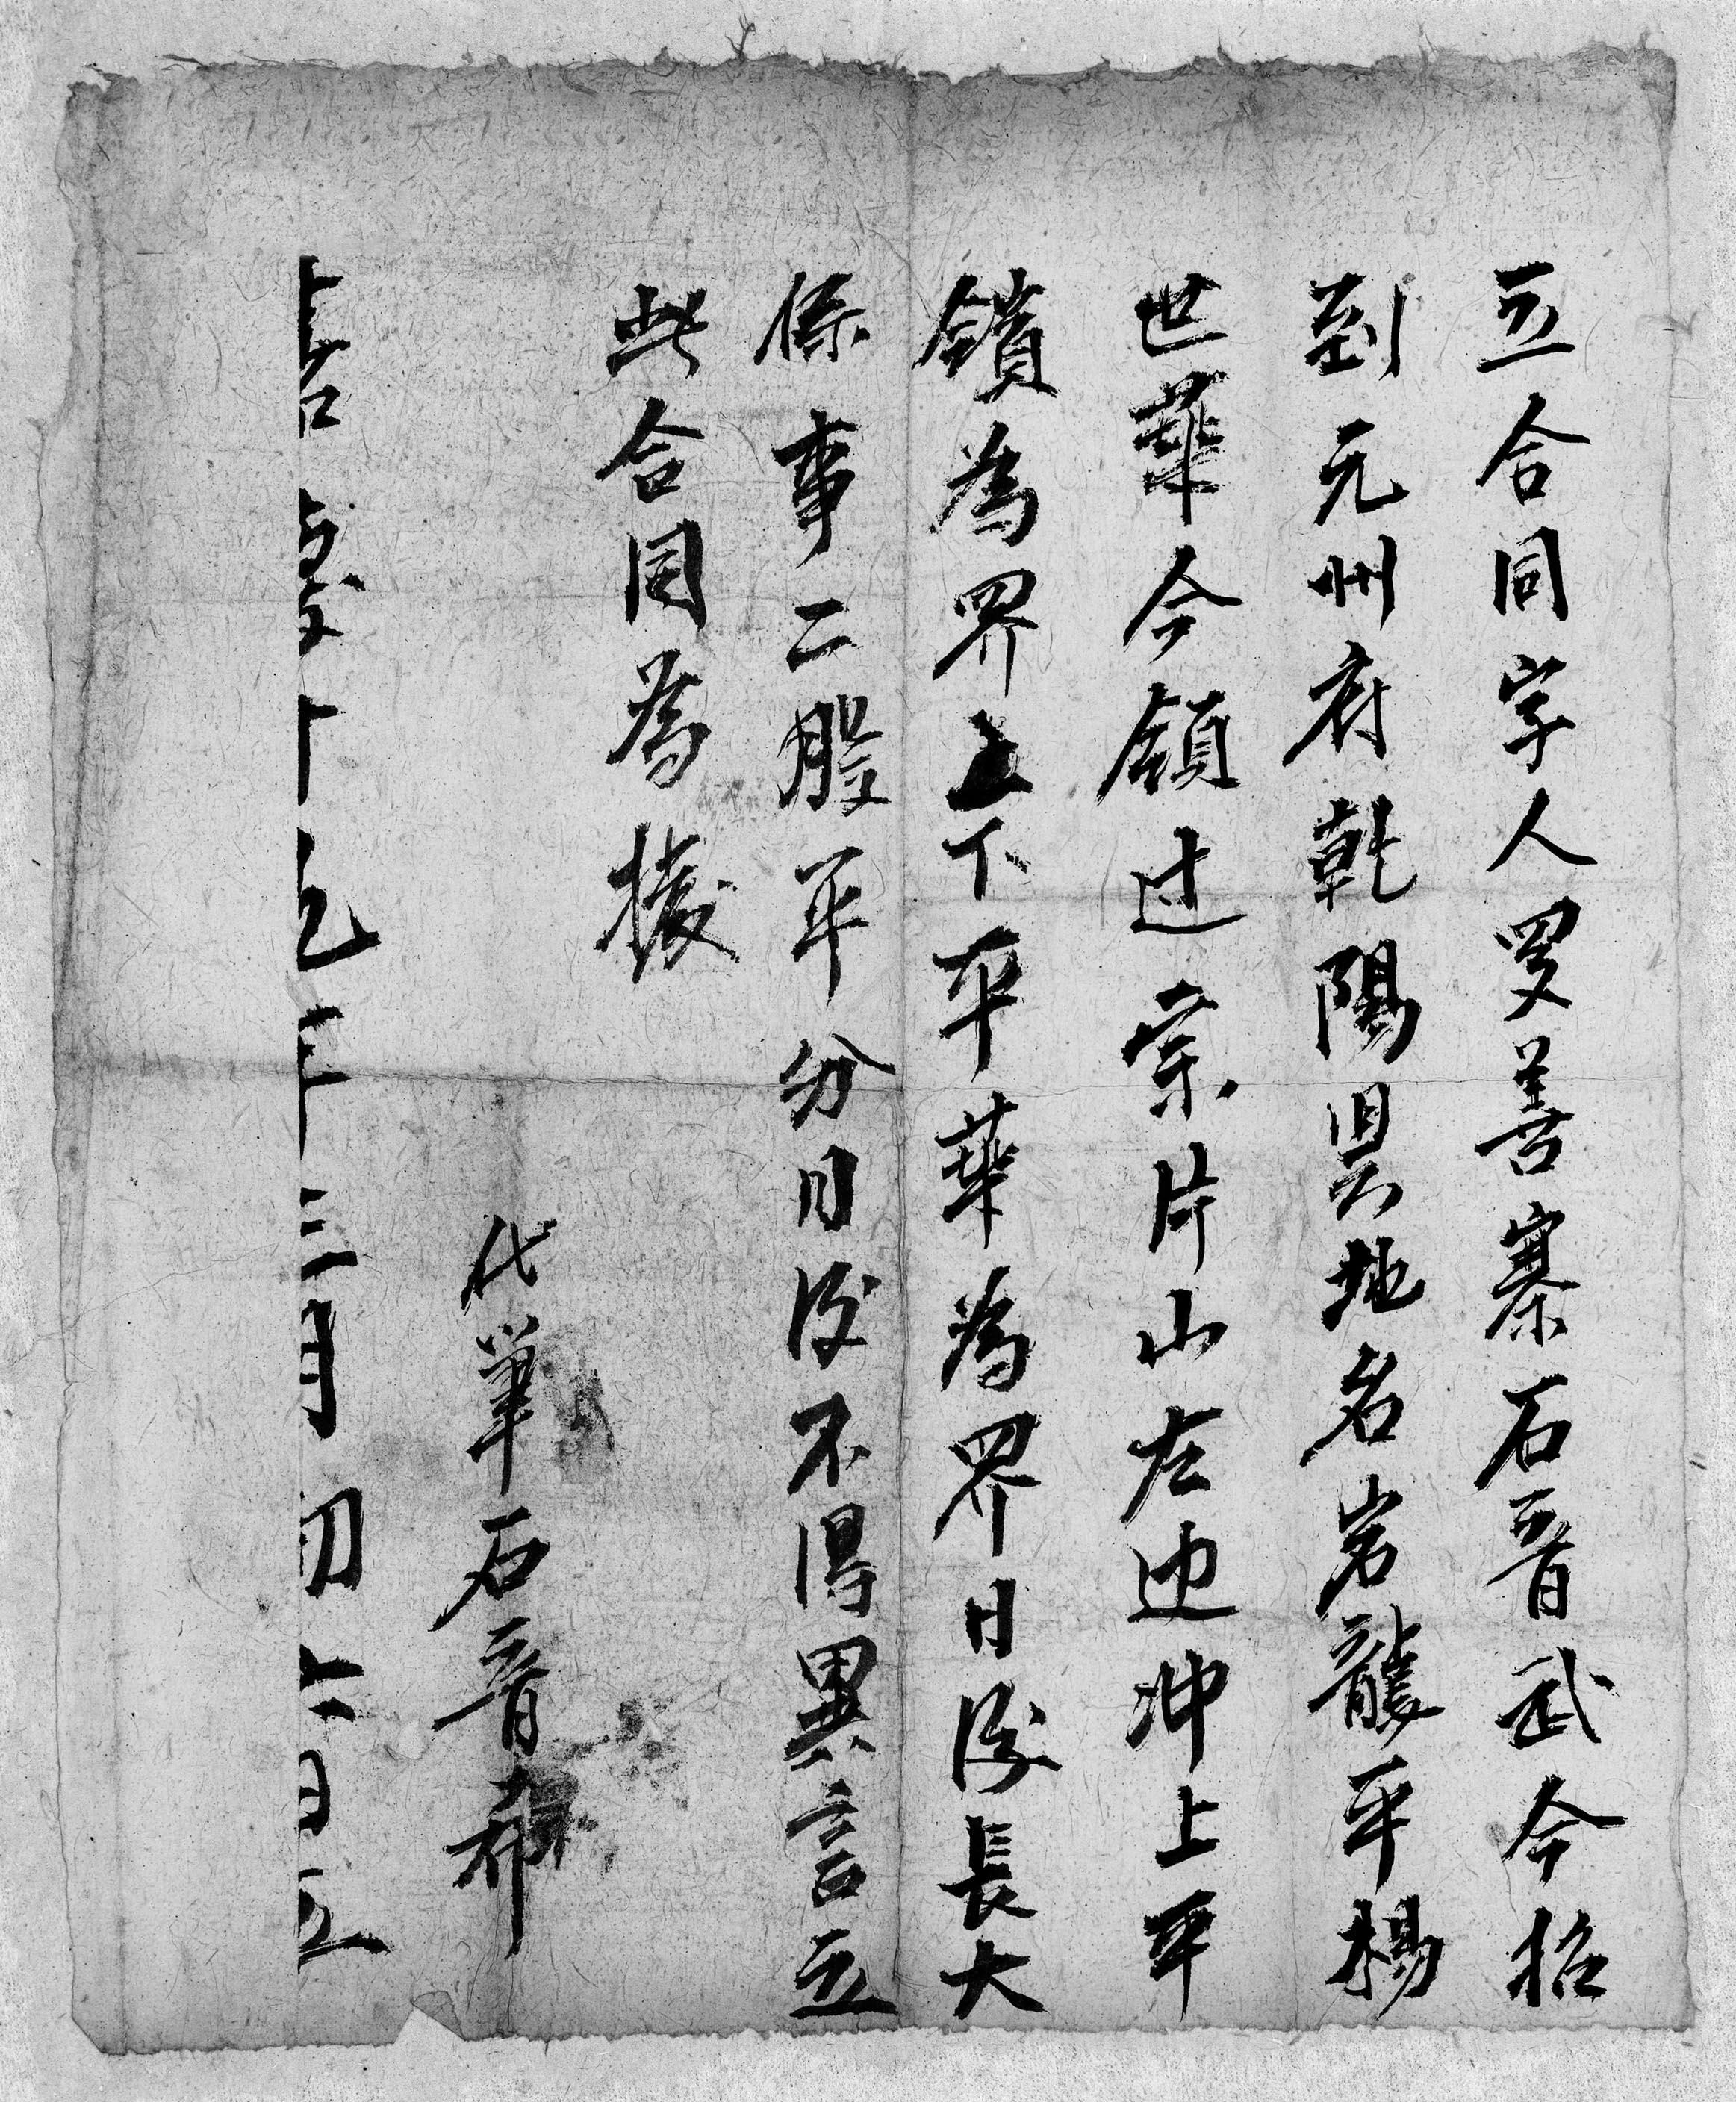 立合同字人罗善寨石晋武今招
到元州府乾陽县地名岩龍平楊
世華今領过 宗片山左边冲上平
鑽為界上下平華為界日後長大
係事二股平分日後不得異言立
此合同為據
代筆石晋希
嘉慶十九年三月初六日立